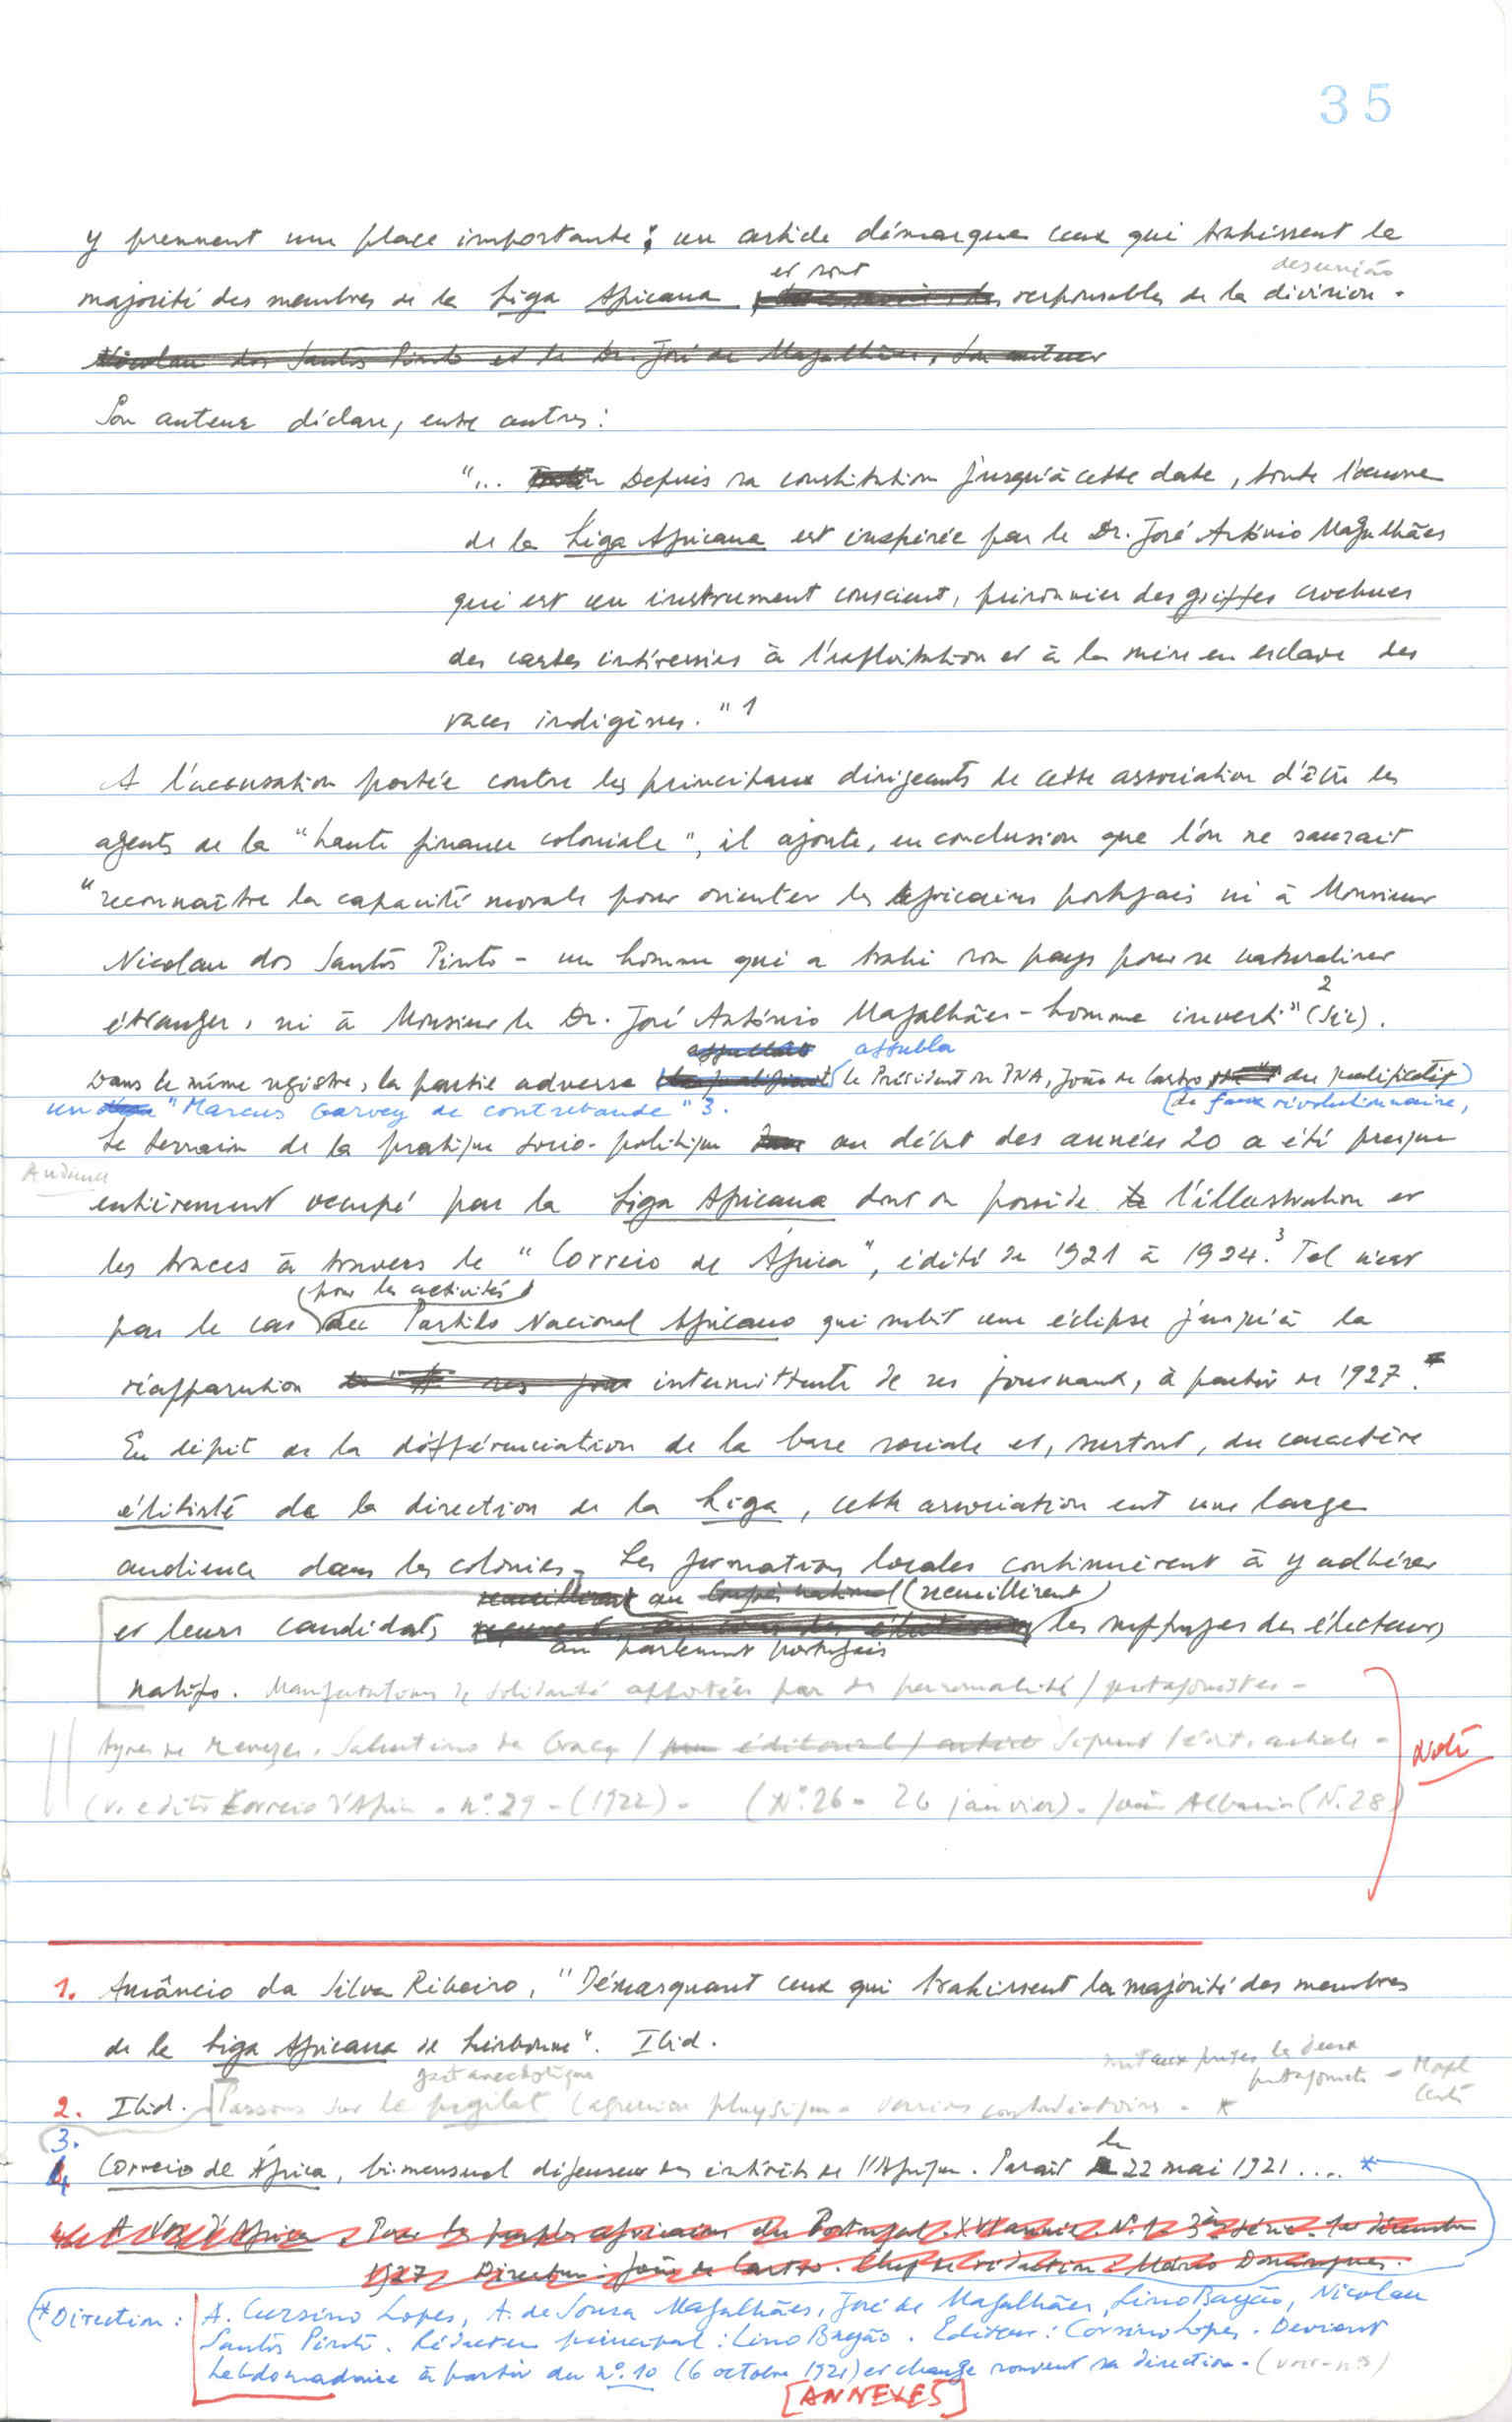 35
y prennent une place importante ; un article démarque ceux qui trahissent la
et sont
desunião
majorité des membres de la Liga Africana responsables de la division.
Nicolau dos Santos Pinto et le Dr. José de Magalhães, Son auteur
Son auteur déclare, entre autres :
"... Depuis sa constitution jusqu'à cette date, toute l'oeuvre
de la Liga Africana est inspirée par le Dr. José António Magalhães
qui est un instrument conscient, prisonnier des griffes crochues
des castes intéressées à l'exploitation et à la mise en esclave des
races indigènes." 1
A l'accusation portée contre les principaux dirigeants de cette association d'être les
agents de la "haute finance coloniale", il ajoute, en conclusion que l'on ne saurait
"reconnaître la capacité morale pour orienter les africains portugais ni à Monsieur
Nicolau dos Santos Pinto - un homme qui a trahi son pays pour se naturaliser
étranger, ni à Monsieur le Dr. José António Magalhães - homme inverti" 2 (sic).
affubla
Dans le même registre, la partie adverse le Président du PNA, João de Castro du qualificatif
un "Marcus Garvey de contrebande" 3.
de faux révolutionnaire,
Le terrain de la pratique socio-politique au début des années 20 a été presque
Audience
entièrement occupé par la Liga Africana dont on possède l'illustration et
les traces à travers le "Correio de África", édité de 1921 à 1924. 3 Tel n'est
pour les activités
pas le cas du Partido Nacional Africano qui subit une éclipse jusqu'à la
réapparution intermittente de ses journaux, à partir de 1927.
En dépit de la différenciation de la base sociale et, surtout, du caractère
élitiste de la direction de la Liga, cette association eut une large
audience dans les colonies. Les formations locales continuèrent à y adhérer
recueillirent au Congrès national (recueillirent)
et leurs candidats les suffrages des électeurs
au parlement portugais
natifs. Manifestations de solidarité apportées par des personnalités / protagonistes -
Ayres de Menezes. / éditorial / article
(v. edito Correio d'Africa - nº 29 - (1922) - (Nº 26 - 26 janvier) - João Albasini (N. 28)
Note
1. Amâncio da Silva Ribeiro, "Démasquant ceux qui trahissent la majorité des membres
de la Liga Africana de Lisbonne". Ibid.
2. Ibid. Passons sur le pugilat (agression physique - versions contradictoires - *
3.
le
4 Correio de África, bi-mensuel défenseur des intérêts de l'Afrique. Parait 22 mai 1921 .... *
4. A Voz d'Africa. Pour les peuples africains du Portugal. XVI année. Nº 1 3ème série. 1er décembre
1927 Directeur : João de Castro. Chef de rédaction : Mário Domingues.
* Direction : A. Cursino Lopes, A. de Sousa Magalhães, José de Magalhães, Lino Bayão, Nicolau
Santos Pinto. Rédacteur principal : Lino Bayão. Editeur : Corsino Lopes. Devient
hebdomadaire à partir du nº 10 (6 octobre 1921) et change souvent sa direction. (voir nºs)
[ANNEXES]